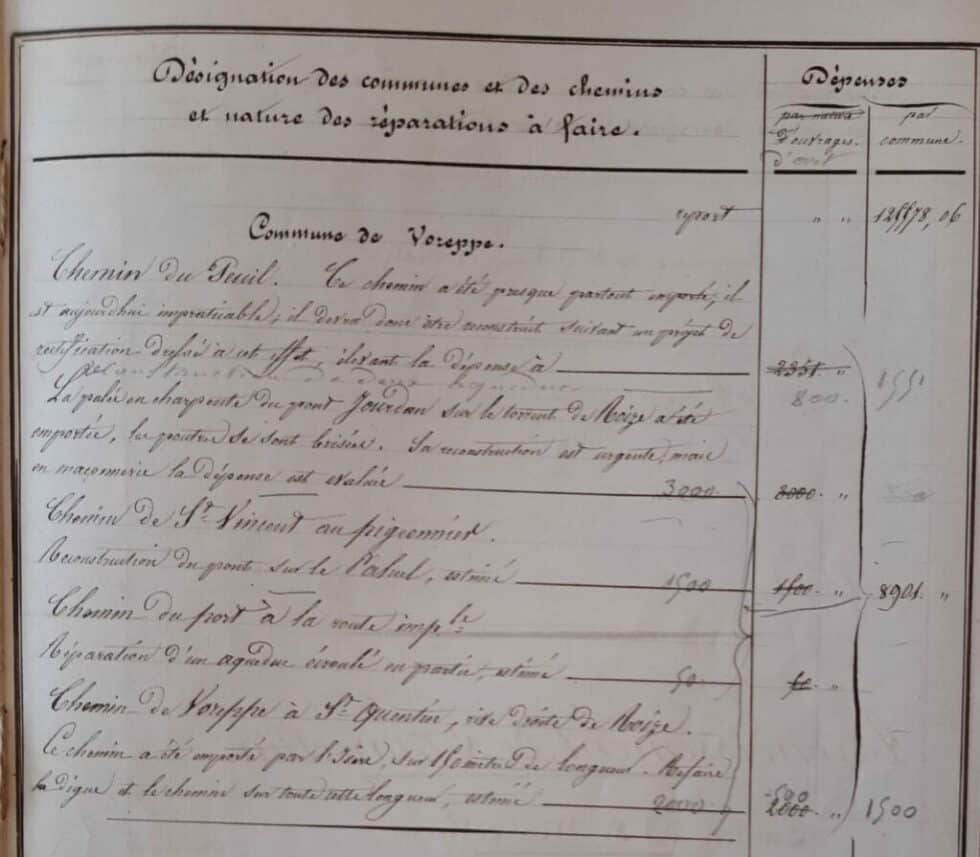 Désignation des communes et des chemins
et nature des réparations à faire.
Dépenses
par nature
d'ouvrages.
par
commune.
report " " 12578,06
Commune de Voreppe.
Chemin du Peuil. Ce chemin a été presque partout emporté, il
est aujourd'hui impraticable, il devra donc être reconstruit suivant un projet de
rectification dressé à cet effet, élevant la dépense à 2351. "
800.
La palée en charpente du pont Jourdan sur le torrent de Roize a été
emportée, les poutres se sont brisées. Sa reconstruction est urgente, mais
en maçonnerie la dépense est évaluée 3000 3000. "
Chemin de St. Vincent au pigeonnier.
Reconstruction du pont sur le Palluel, estimé 1500 1500. " 8901. "
Chemin du port à la route imple
Réparation d'un aqueduc écroulé en partie, estimé 50. 50. "
Chemin de Voreppe à St. Quentin, rive droite de Roize.
Ce chemin a été emporté par l'Isère, sur 150 mètres de longueur. Refaire
la digue et le chemin sur toute cette longueur, estimé 2000 2000. " 1500
500